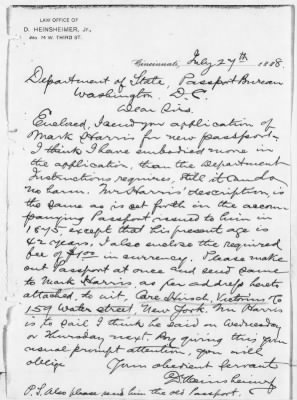 LAW OFFICE OF
D. HEINSHEIMER, Jr.,
No. 74 W. THIRD ST.
Cincinnati, July 27th 1888.
Department of State, Passport Bureau
Washington D.C.
Dear Sirs.
Enclosed, I send you application of
Mark Harris for new passport,
I think I have embodied more in
the application, than the Department
Instructions requires, still it can do
no harm. Mr Harris' description, is
the same as is set forth in the accom
panying Passport issued to him in
1875, except that his present age is
42 years. I also enclose the required
fee of $1.00 in currency. Please make
out Passport at once and send same
to Mark Harris, as per address hereto
attached, to wit, Care Hirsch, Victorius &
159 Water street, New York. Mr Harris
is to sail I think he said on Wednesday
or Thursday next. By giving this your
usual prompt attention, you will
oblige Your obedient servant
D. Heinsheimer Jr
P.S. Also please send him the old Passport.